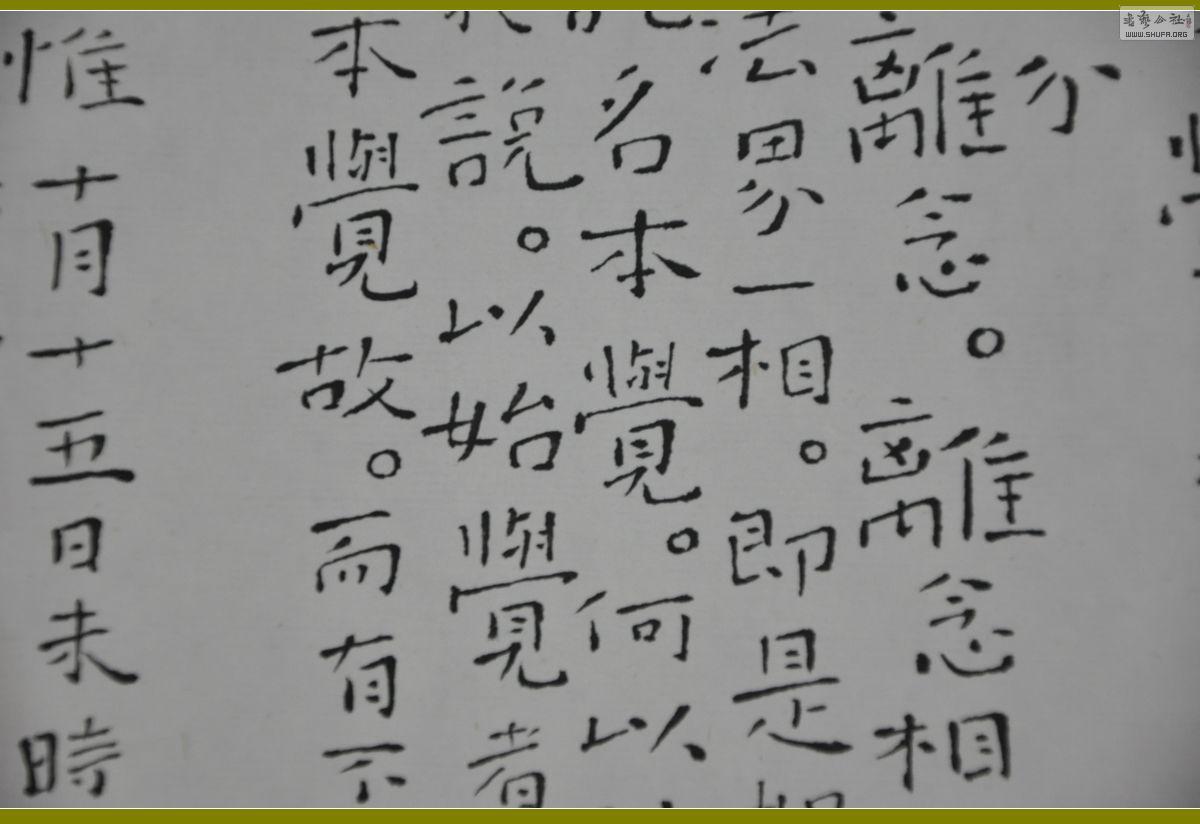 分
離念。離念相
法界一相。即是
名本覺。何以
說。以始覺者
本覺故。而有不
惟十月十五日未時
书艺公社
WWW.SHUFA.ORG